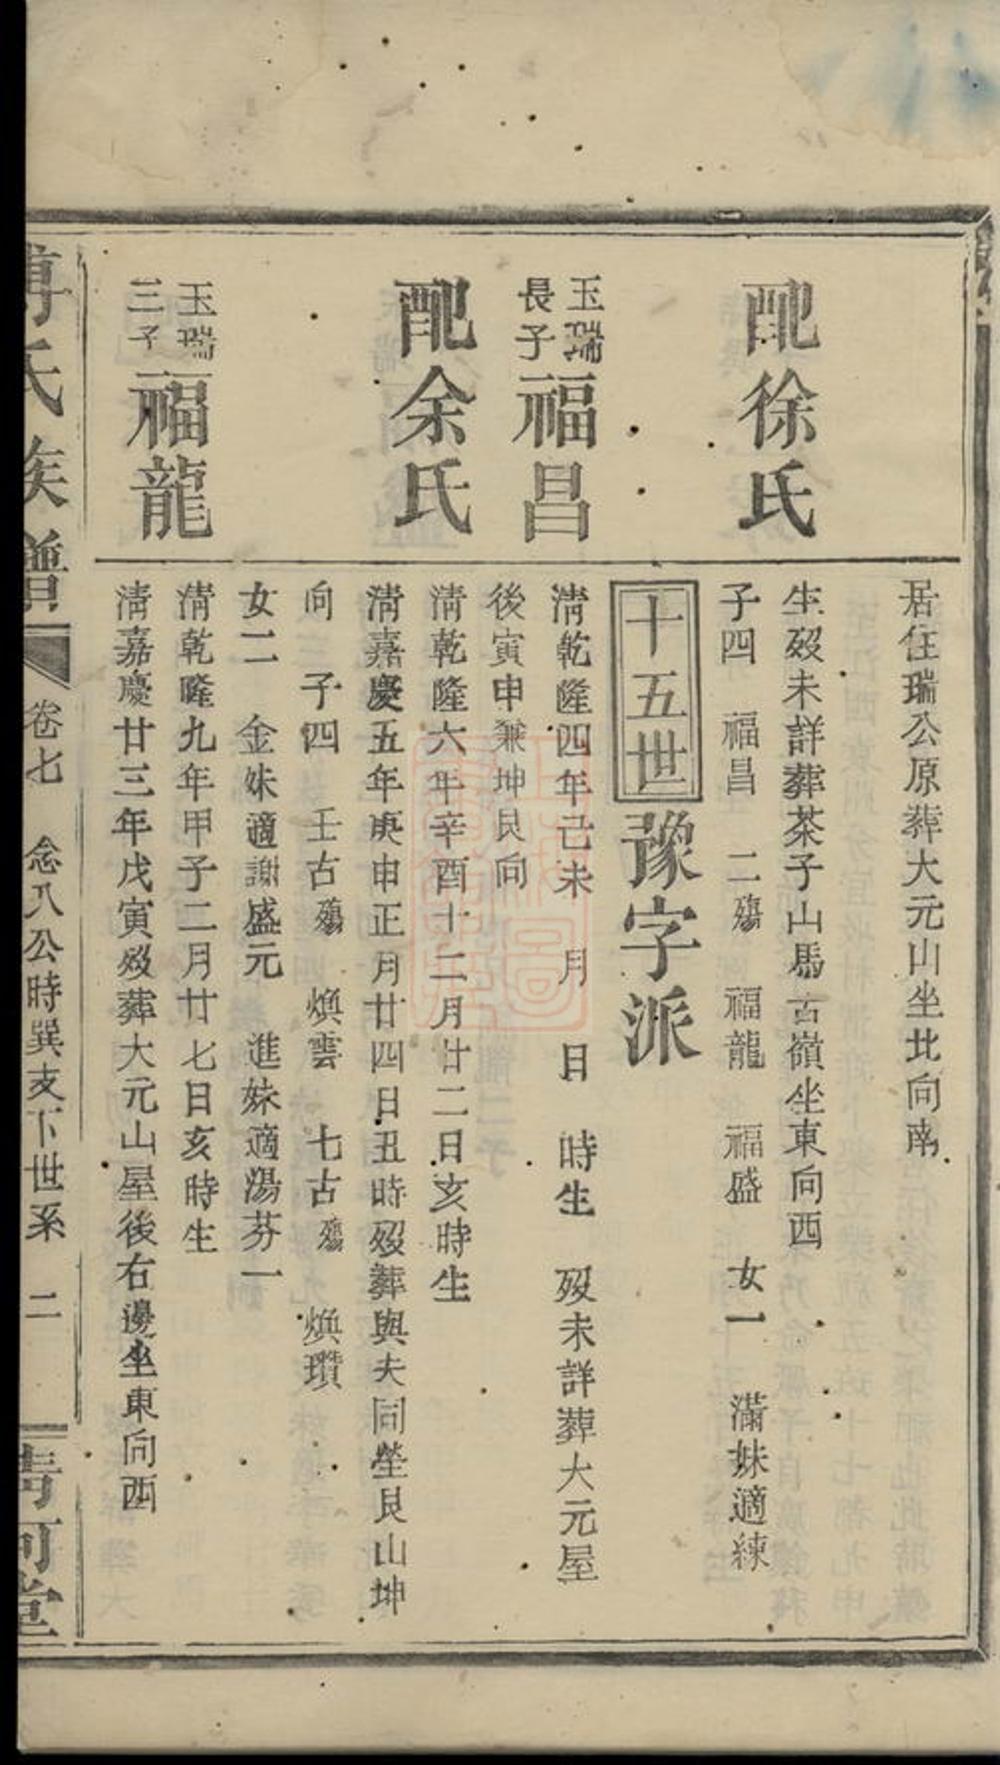 居住瑞公原葬大元山坐北向南
配徐氏
生歿未詳葬茶子山馬古嶺坐東向西
子四 福昌 二殤 福龍 福盛 女一 滿妹適練
十五世豫字派
玉瑞長子福昌
清乾隆四年己未 月 日 時生 歿未詳葬大元屋
後寅申兼坤艮向
配余氏
清乾隆六年辛酉十二月廿二日亥時生
清嘉慶五年庚申正月廿四日丑時歿葬與夫同塋艮山坤
向 子四 壬古殤 煥雲 七古殤 煥瓚
女二 金妹適謝盛元 進妹適湯芬一
玉瑞三子福龍
清乾隆九年甲子二月廿七日亥時生
清嘉慶廿三年戊寅歿葬大元山屋後右邊坐東向西
氏族譜 卷七 念八公時巽支下世系 二 堂